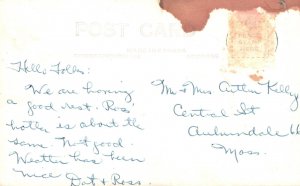 POST CARD
PLACE
STAMP
HERE
Hello Folks:
We are having
a good rest. Ross'
bother is about the
same. Not good.
Weather has been
nice Dot & Ross.
Mr & Mrs Arthur Kelly
Central St
Auburndale 66
Mass.